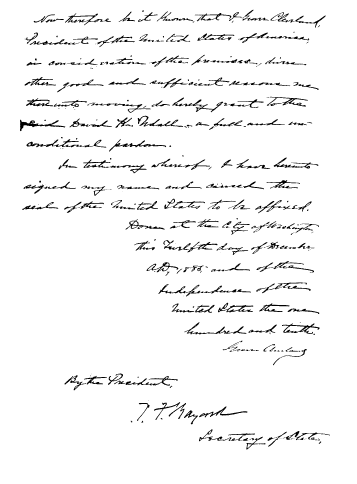 Now therefore be it known, that I Grover Cleveland,
President of the United States of America,
in consideration of the premises, divers
other good and sufficient reasons me
thereunto moving, do hereby grant to the
said David H. a full and un-
conditional pardon.
In testimony whereof, I have hereunto
signed my name and caused the
seal of the United States to be affixed.
Done at the City of Washington
this Twelfth day of December
A.D. 1885; and of the
Independence of the
United States the one
hundred and tenth.
Grover Cleveland
By the President,
T. F. Bayard
Secretary of State.